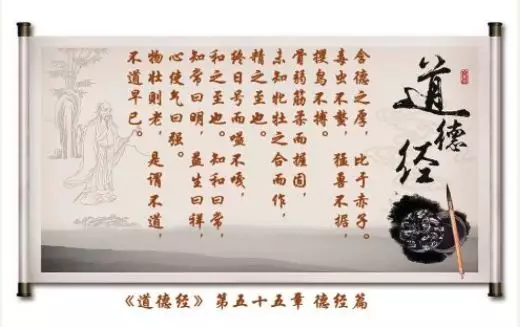 道德经
含德之厚，比于赤子。
毒虫不螫，猛兽不据，
攫鸟不搏。
骨弱筋柔而握固，
未知牝牡之合而作，
精之至也。
终日号而嗌不嗄，
和之至也。知和曰常，
知常曰明，益生曰祥，
心使气曰强。
物壮则老，是谓不道，
不道早已。
《道德经》第五十五章 德经篇